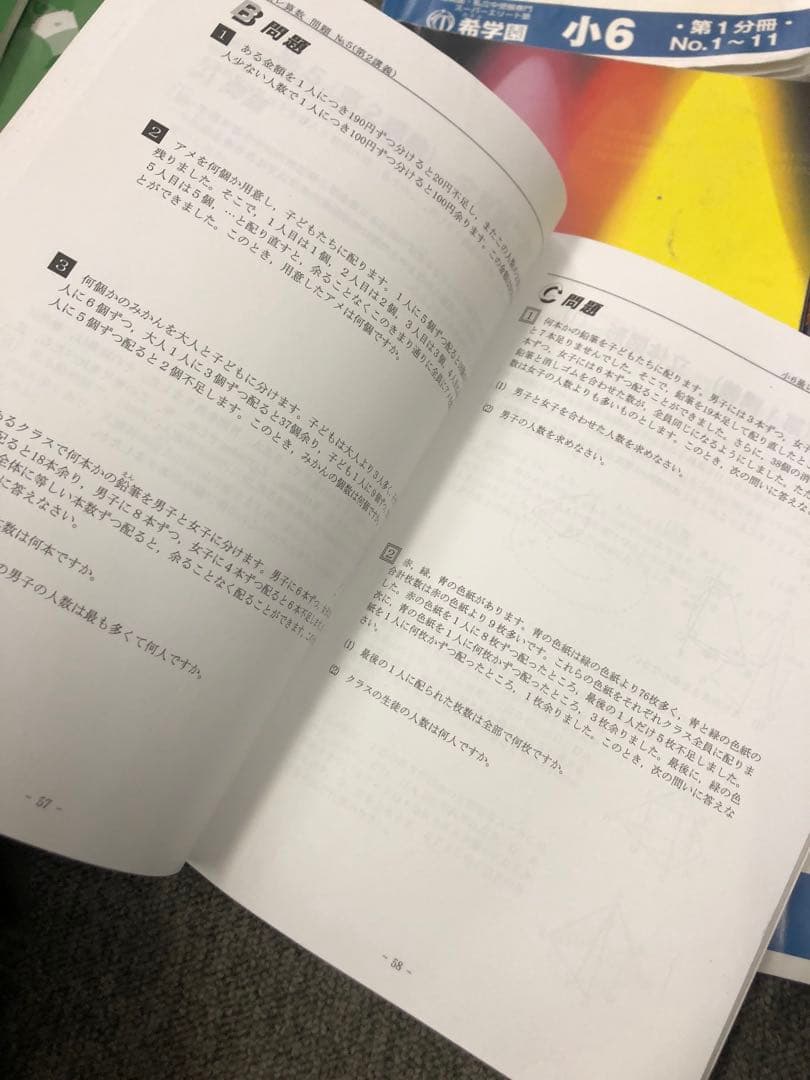 算数 問題 №5(第2講義)
B 問題
1 ある金額を1人につき190円ずつ分けると20円不足し、またこの人数
人少ない人数で1人につき100円ずつ分けると100円余ります。この金額は
2 アメを何個か用意し、子どもたちに配ります。1人に5個ずつ配ると
残りました。そこで、1人目は1個、2人目は2個、3人目は3個、4人
5人目は5個、…と配り直すと、余ることなくこのきまり通りに全員に
とができました。このとき、用意したアメは何個ですか。
3 何個かのみかんを大人と子どもに分けます。子どもは大人より3人多く、
人に6個ずつ、大人1人に3個ずつ配ると37個余り、子ども1人に9個ずつ、
人に5個ずつ配ると2個不足します。このとき、みかんの個数は何個ですか。
あるクラスで何本かの鉛筆を男子と女子に分けます。男子に6本ずつ、
配ると18本余り、男子に8本ずつ、女子に4本ずつ配ると6本不足します
全体に等しい本数ずつ配ると、余ることなく配ることができます。この
に答えなさい。
数は何本ですか。
の男子の人数は最も多くて何人ですか。
- 57 -
希学園
小6
・第1分冊・
No.1～11
小6
C 問題
1 何本かの鉛筆を子どもたちに配ります。男子には3本ずつ、女子
と7本足りませんでした。そこで、鉛筆を19本足して配り直したと
本ずつ、女子には6本ずつ配ることができました。さらに、38個の消
鉛筆と消しゴムを合わせた数が、全員同じになるようにしました。た
数は女子の人数よりも多いものとします。このとき、次の問いに答えな
(1) 男子と女子を合わせた人数を求めなさい。
(2) 男子の人数を求めなさい。
2 赤、緑、青の色紙があります。青の色紙は緑の色紙より76枚多く、青と緑の色紙の
合計枚数は赤の色紙より9枚多いです。これらの色紙をそれぞれクラス全員に配りま
した。赤の色紙を1人に8枚ずつ配ったところ、最後の1人だけ5枚不足しました。
次に、青の色紙を1人に何枚かずつ配ったところ、3枚余りました。最後に、緑の色
紙を1人に何枚かずつ配ったところ、1枚余りました。このとき、次の問いに答えな
さい。
(1) 最後の1人に配られた枚数は全部で何枚ですか。
(2) クラスの生徒の人数は何人ですか。
- 58 -